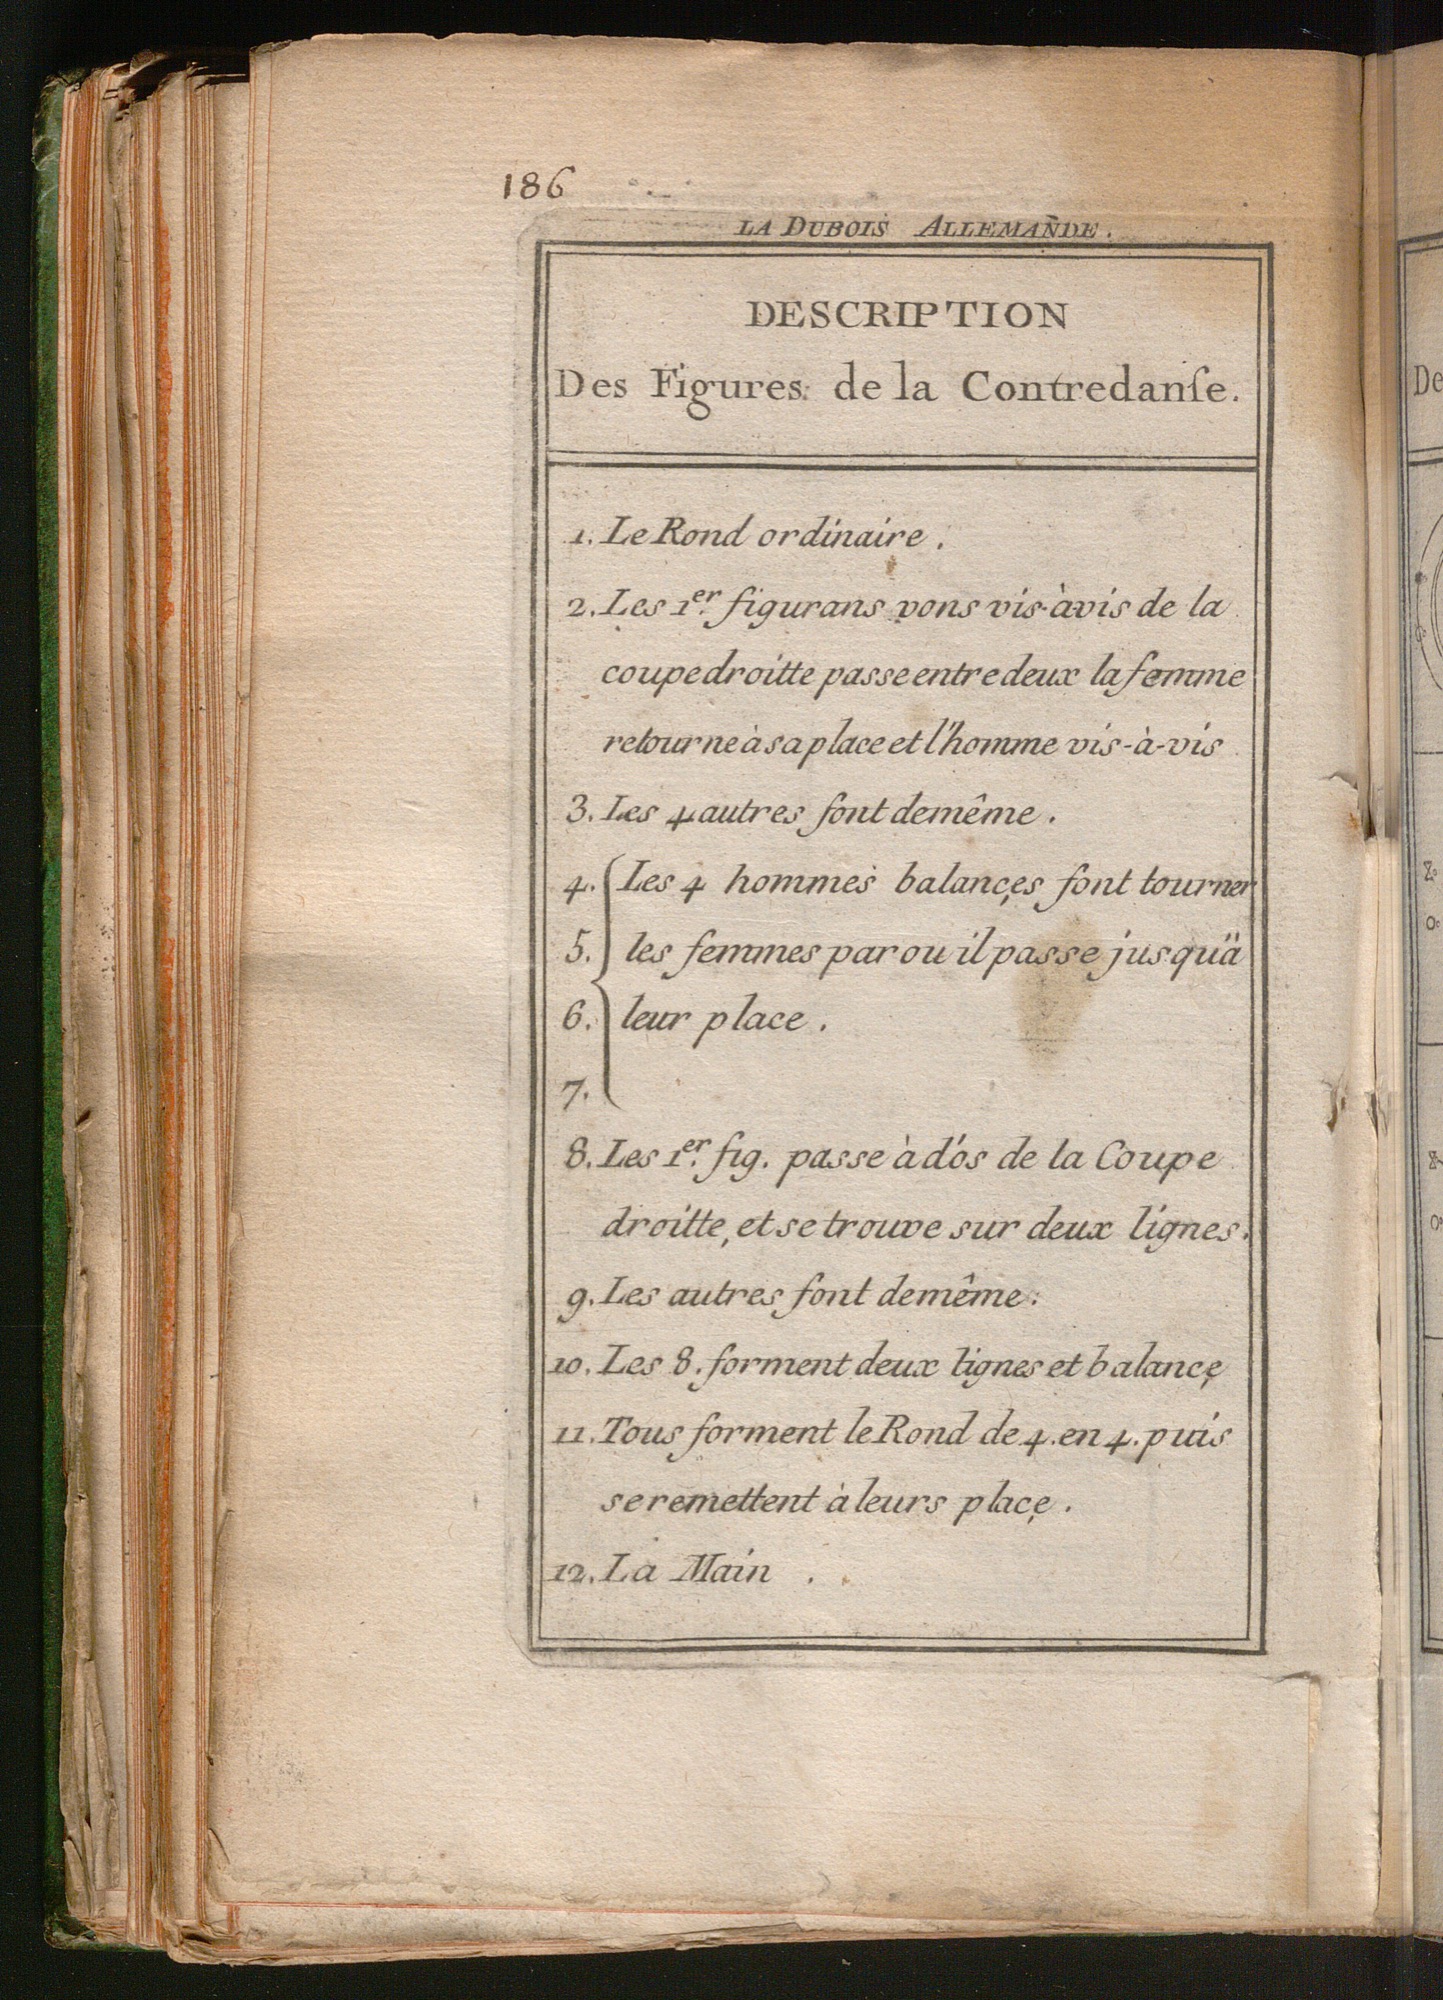 186
LA DUBOIS ALLEMAÑDE.
DESCRIPTION
Des Figures de la Contredanſe.
1. Le Rond ordinaire.
2. Les 1er. figurans vons vis-à-vis de la
coupe droitte passe entre deux la femme
retourne à sa place et l'homme vis-à-vis
3. Les 4 autres font demême.
4. Les 4 hommes balançes font tourner
5. les femmes par ou il passe jusqu'ä
6. leur place.
7.
8. Les 1er. fig. passe à dós de la Coupe
droitte, et se trouve sur deux lignes.
9. Les autres font demême.
10. Les 8. forment deux lignes et balançe
11. Tous forment le Rond de 4. en 4. puis
se remettent à leurs plaçe.
12. La Main.
De